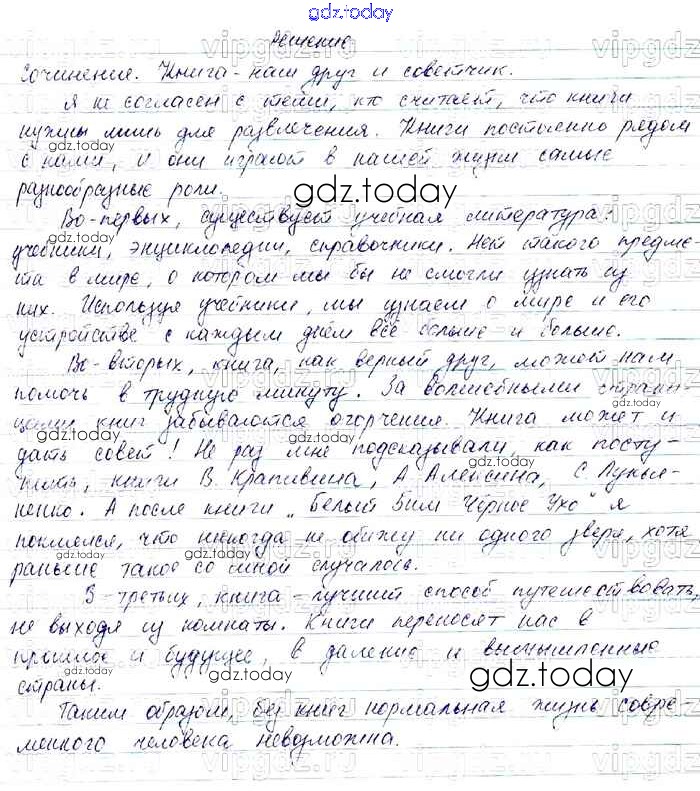 gdz.today
Решение
Сочинение. Книга - наш друг и советчик.
Я не согласен с теми, кто считает, что книги
нужны лишь для развлечения. Книги постоянно рядом
с нами, и они играют в нашей жизни самые
разнообразные роли.
Во-первых, существует учебная литература:
учебники, энциклопедии, справочники. Нет такого предме-
та в мире, о котором мы бы не смогли узнать из
них. Используя учебники, мы узнаем о мире и его
устройстве с каждым днём всё больше и больше.
Во-вторых, книга, как верный друг, может нам
помочь в трудную минуту. За волшебными страни-
цами книг забываются огорчения. Книга может и
дать совет! Не раз мне подсказывали, как посту-
пить, книги В. Крапивина, А. Алексина, С. Лукья-
ненко. А после книги „Белый Бим Чёрное Ухо" я
поклялся, что никогда не обижу ни одного зверя, хотя
раньше такое со мной случалось.
В-третьих, книга - лучший способ путешествовать,
не выходя из комнаты. Книги переносят нас в
прошлое и будущее, в далекие и вымышленные
страны.
Таким образом, без книг нормальная жизнь совре-
менного человека невозможна.